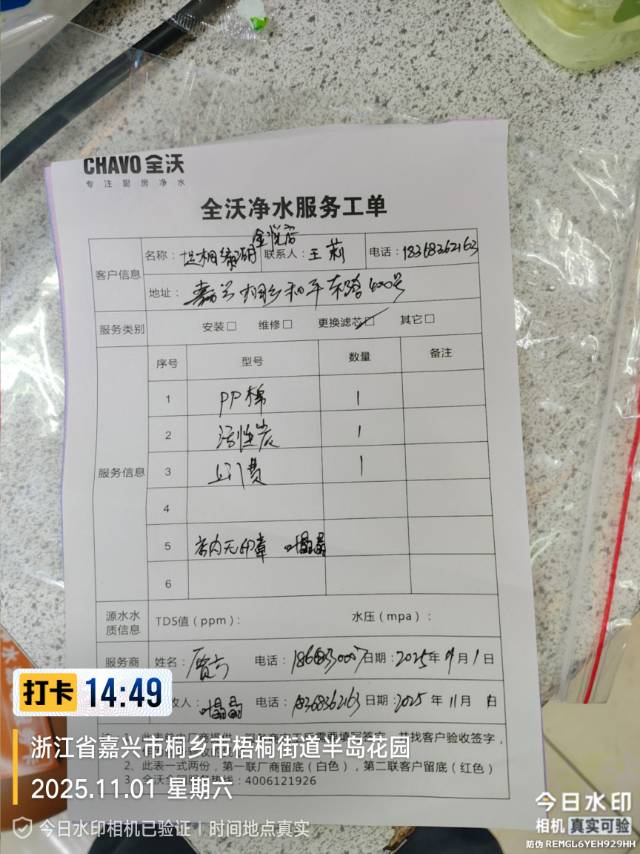 CHAVO 全沃
专注厨房净水
全沃净水服务工单
客户信息
名称：
联系人：王莉
电话：18368362163
地址：嘉兴桐乡和平东路400号
服务类别
安装□ 维修□ 更换滤芯☑ 其它□
服务信息
序号 型号 数量 备注
1 PP棉 1
2 活性炭 1
3 上门费 1
4
5 店内无印章 晶晶
6
源水水质信息
TDS值（ppm）： 水压（mpa）：
服务商 姓名： 电话： 日期：2025年11月1日
收人： 晶晶 电话：18368362163 日期：2025年11月 日
2、此表一式两份，第一联厂商留底（白色），第二联客户留底（红色）
热线：4006121926
打卡 14:49
浙江省嘉兴市桐乡市梧桐街道半岛花园
2025.11.01 星期六
今日水印相机已验证 | 时间地点真实
今日水印
相机 真实可验
防伪 REMGL6YEH929HH